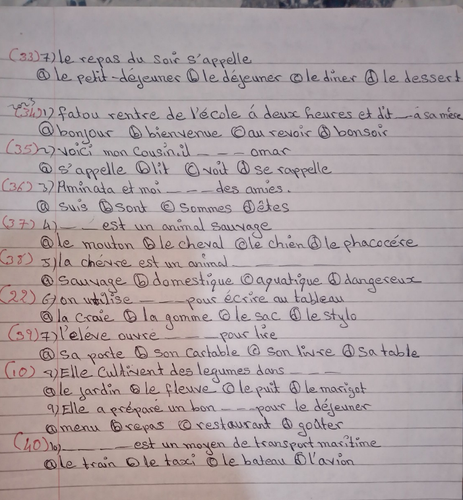 (33) 7) le repas du soir s'appelle
ⓐ le petit-déjeuner ⓑ le déjeuner ⓒ le diner ⓓ le dessert
(34) 1) fatou rentre de l'école à deux heures et dit __ à sa mère
ⓐ bonjour ⓑ bienvenue ⓒ au revoir ⓓ bonsoir
(35) 2) voici mon cousin.il ___ omar
ⓐ s'appelle ⓑ lit ⓒ voit ⓓ se rappelle
(36) 3) Aminata et moi ___ des amies.
ⓐ suis ⓑ sont ⓒ sommes ⓓ êtes
(37) 4) ___ est un animal sauvage
ⓐ le mouton ⓑ le cheval ⓒ le chien ⓓ le phacocére
(38) 5) la chèvre est un animal ___
ⓐ sauvage ⓑ domestique ⓒ aquatique ⓓ dangereux
(22) 6) on utilise ___ pour écrire au tableau
ⓐ la craie ⓑ la gomme ⓒ le sac ⓓ le stylo
(39) 7) l'éléve ouvre ___ pour lire
ⓐ sa porte ⓑ son cartable ⓒ son livre ⓓ sa table
(10) 8) Elle cultivent des legumes dans ___
ⓐ le jardin ⓑ le fleuve ⓒ le puit ⓓ le marigot
9) Elle a préparé un bon ___ pour le déjeuner
ⓐ menu ⓑ repas ⓒ restaurant ⓓ goûter
(40) 10) ___ est un moyen de transport maritime
ⓐ le train ⓑ le taxi ⓒ le bateau ⓓ l'avion